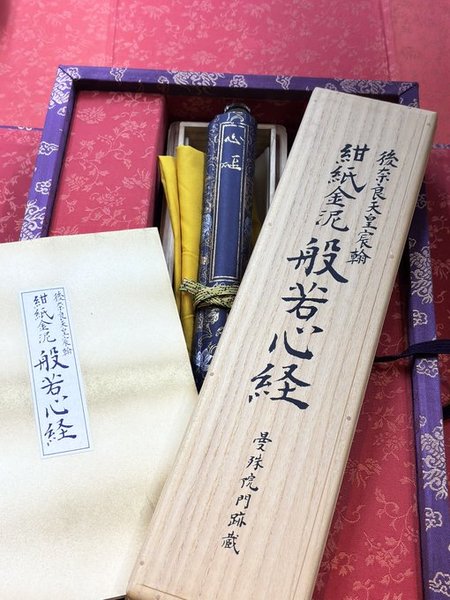 後奈良天皇宸翰
紺紙金泥
般若心経
曼殊院門跡蔵
心経
後奈良天皇宸翰
紺紙金泥
般若心経